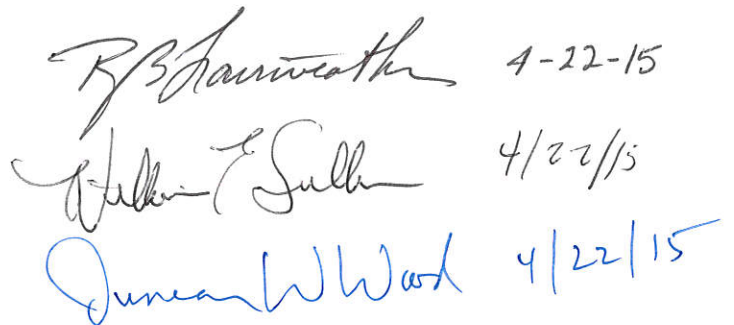 RB Fairweather 4-22-15
William E Sull 4/22/15
Duncan W Wood 4/22/15